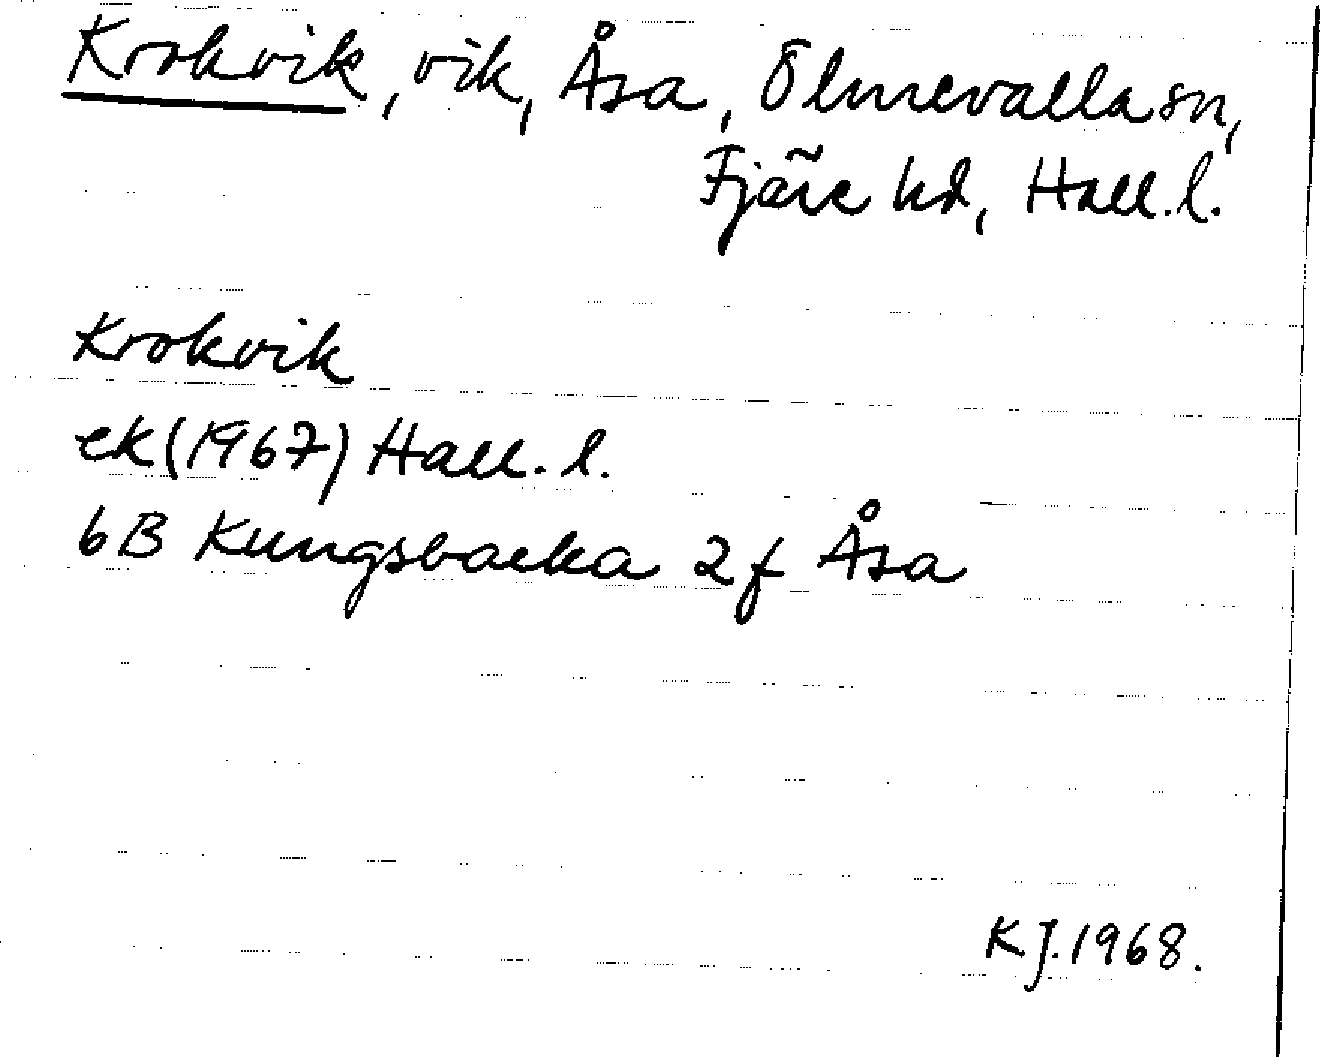 Krokvik, vik, Åsa, Ölmevalla sn,
Fjäre hd, Hall. l.
Krokvik
ek (1967) Hall. l.
6B Kungsbacka 2f Åsa
KJ. 1968.